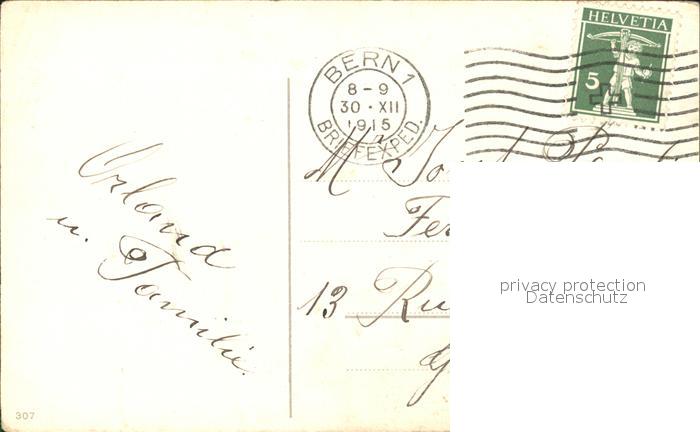 HELVETIA
5
BERN 1
8-9
30·XII
1915
BRIEFEXPED.
Orland
u. Familie.
Mr
13 Ru
privacy protection
Datenschutz
307